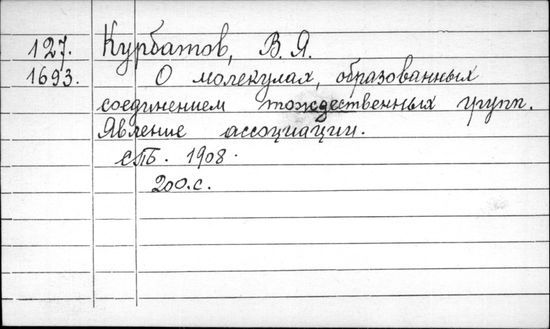 127. Курбатов, В. Я.
1693. О молекулах, образованных
соединением тождественных групп.
Явление ассоциации.
СПб. 1908.
200.с.